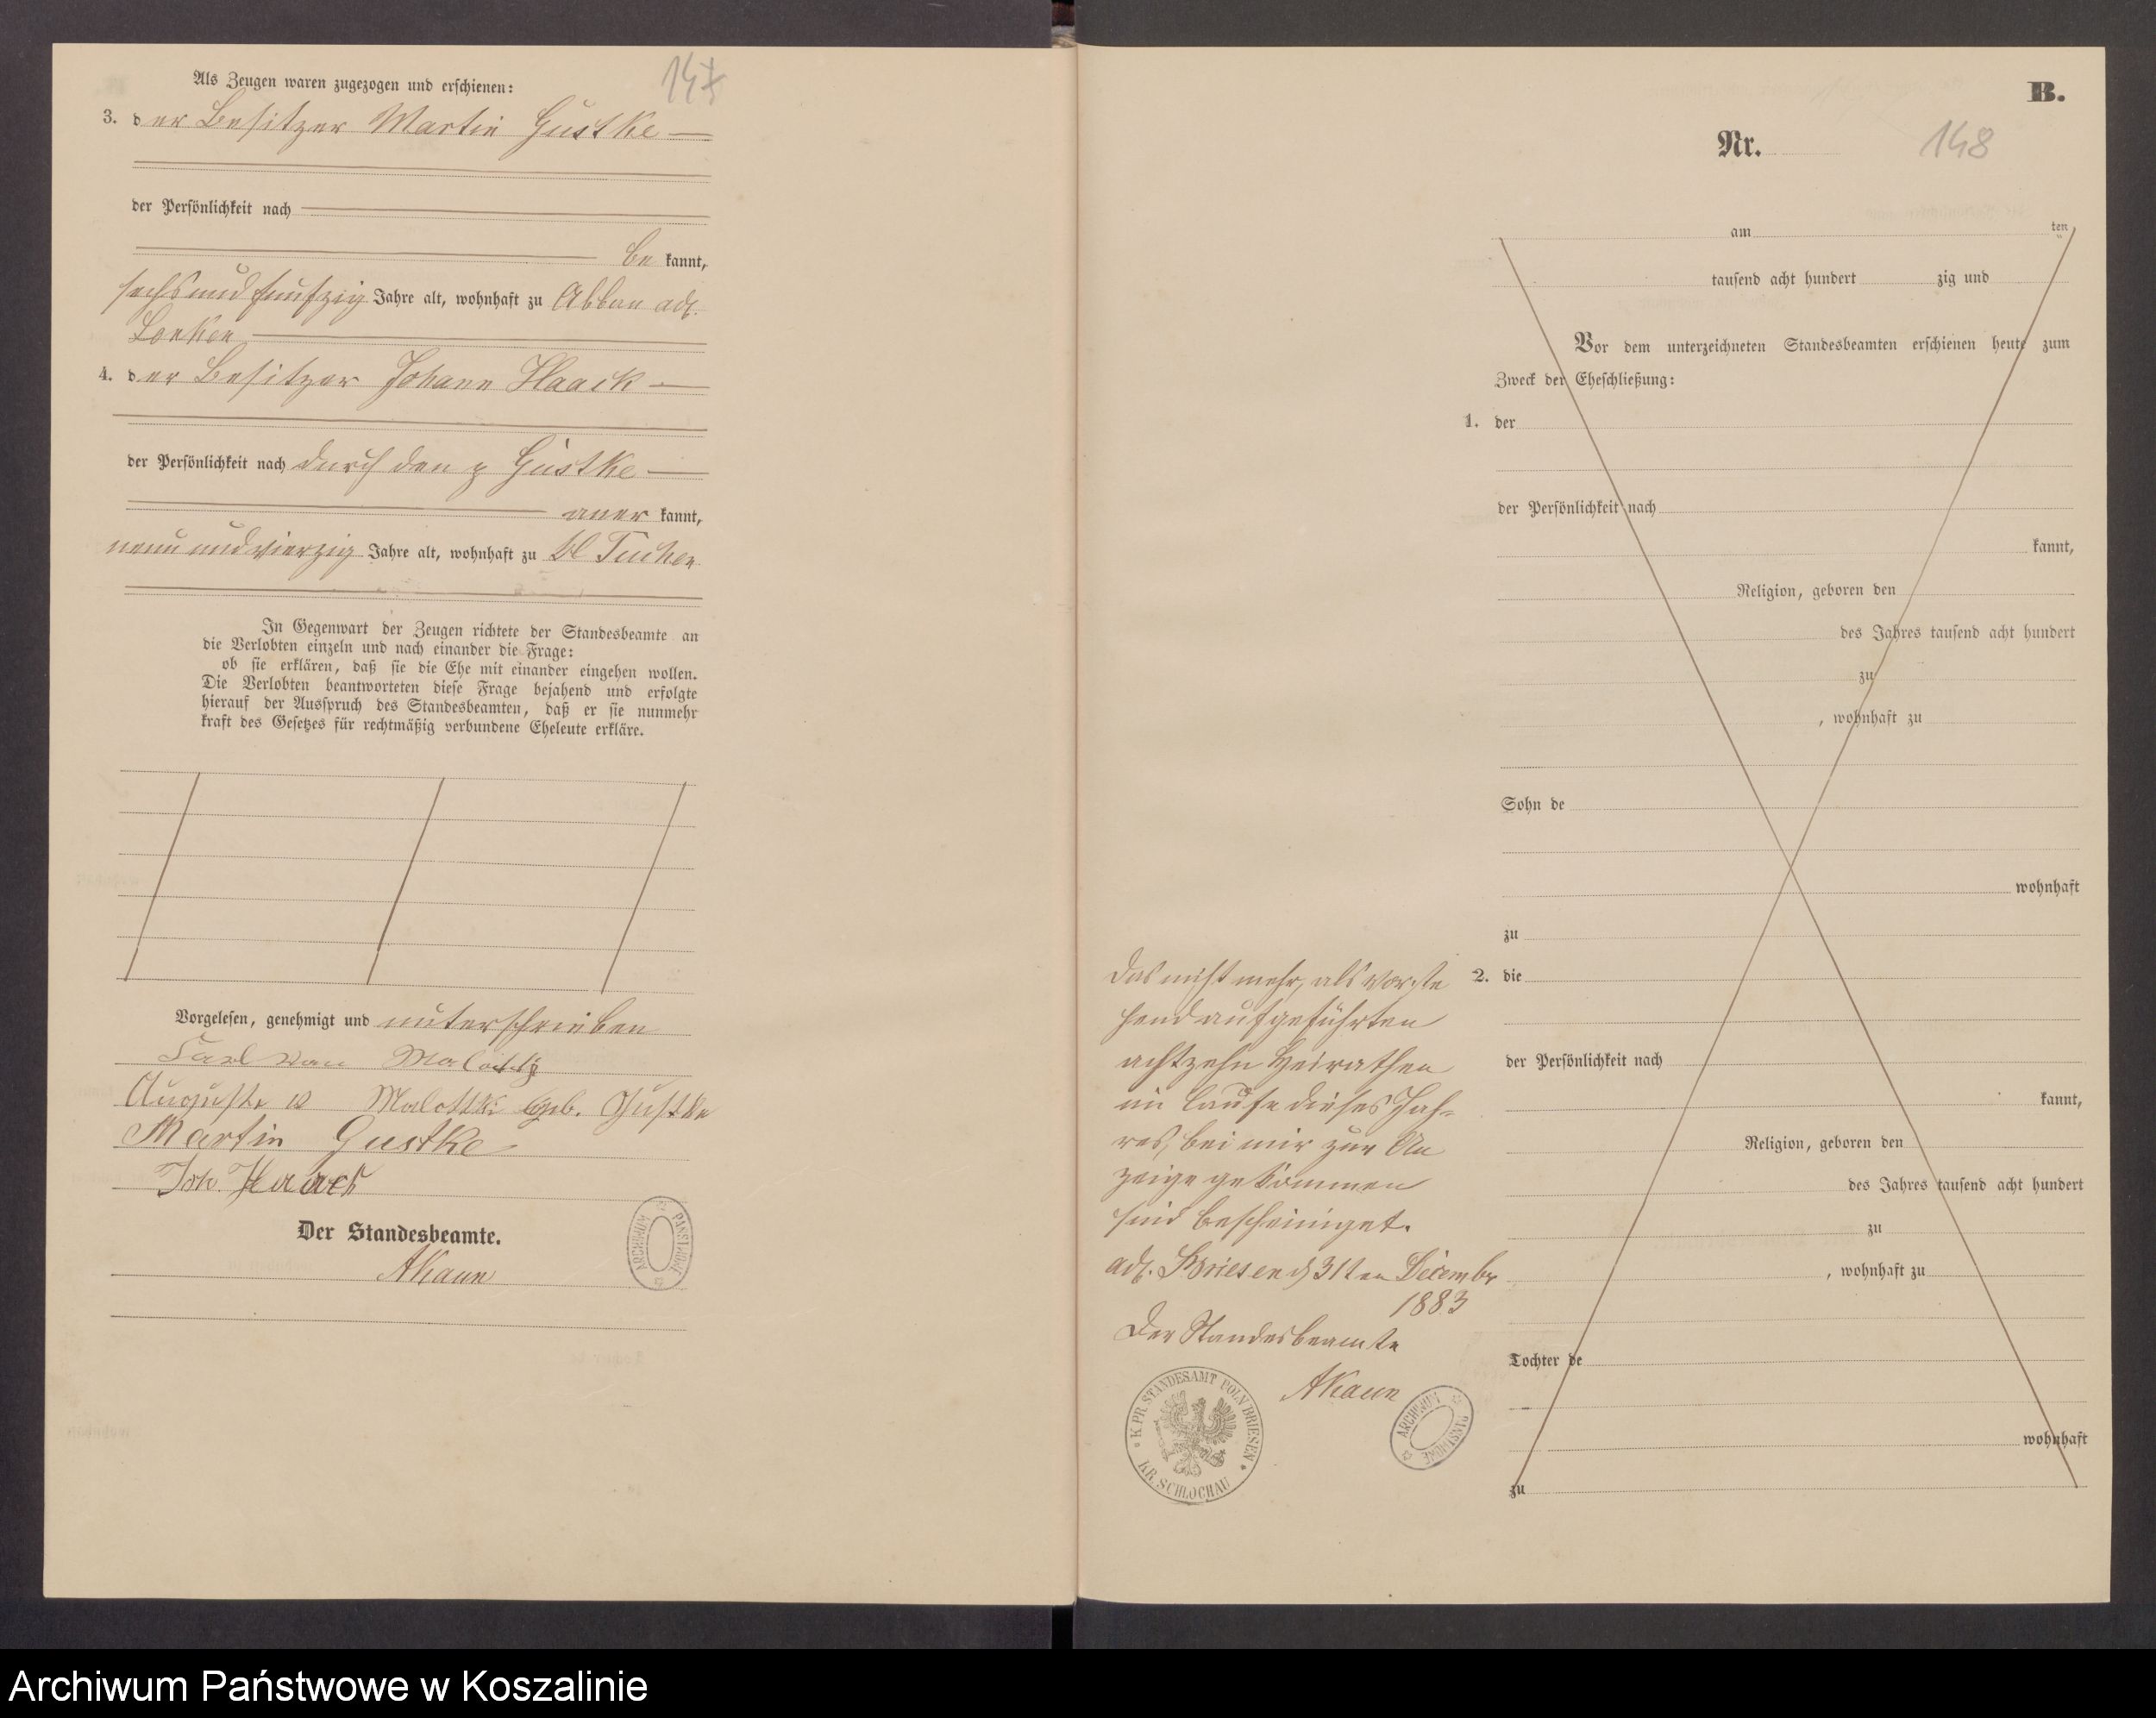 Als Zeugen waren zugezogen und erschienen:
147
3. der Besitzer Martin Gustke
der Persönlichkeit nach
be kannt,
sechsundfunfzig Jahre alt, wohnhaft zu Abbau adl.
Lonken
4. der Besitzer Johann Haack
der Persönlichkeit nach durch den p Gustke
aner kannt,
neunundvierzig Jahre alt, wohnhaft zu Kl Tuchen
In Gegenwart der Zeugen richtete der Standesbeamte an
die Verlobten einzeln und nach einander die Frage:
ob sie erklären, daß sie die Ehe mit einander eingehen wollen.
Die Verlobten beantworteten diese Frage bejahend und erfolgte
hierauf der Ausspruch des Standesbeamten, daß er sie nunmehr
kraft des Gesetzes für rechtmäßig verbundene Eheleute erkläre.
Vorgelesen, genehmigt und unterschrieben
Carl von Malottky
Auguste v Malottki geb. Gustke
Martin Gustke
Joh. Haack
Der Standesbeamte.
AKaun
ARCHIWUM PAŃSTWOWE
B.
Nr. 148
am ten
tausend acht hundert zig und
Vor dem unterzeichneten Standesbeamten erschienen heute zum
Zweck der Eheschließung:
1. der
der Persönlichkeit nach
kannt,
Religion, geboren den
des Jahres tausend acht hundert
zu
, wohnhaft zu
Sohn de
wohnhaft
zu
2. die
der Persönlichkeit nach
kannt,
Religion, geboren den
des Jahres tausend acht hundert
zu
, wohnhaft zu
Tochter de
wohnhaft
zu
Das nicht mehr, als vorste
hend aufgeführten
achtzehn Heirathen
im Laufe dieses Jah-
res, bei mir zur An
zeige gekommen
sind bescheiniget.
adl. Briesen d 31ten Decembr
1883
Der Standesbeamte
AKaun
K. PR. STANDESAMT POLN BRIESEN
KR. SCHLOCHAU
ARCHIWUM PAŃSTWOWE
Archiwum Państwowe w Koszalinie